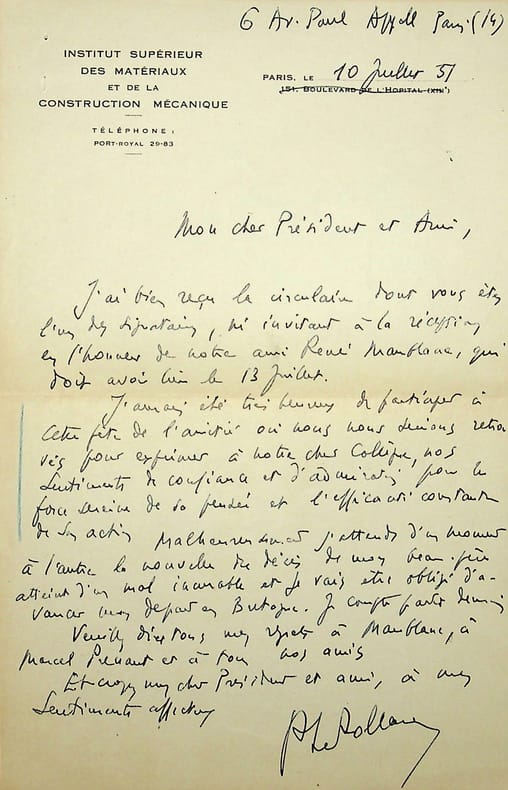 6 Av. Paul Appell Paris (14)
INSTITUT SUPÉRIEUR
DES MATÉRIAUX
ET DE LA
CONSTRUCTION MÉCANIQUE
TÉLÉPHONE :
PORT-ROYAL 29-83
PARIS, LE 10 Juillet 51
151, BOULEVARD DE L'HOPITAL (XIIIe)
Mon cher Président et Ami,
J'ai bien reçu la circulaire dont vous êtes
l'un des signataires, m'invitant à la réception
en l'honneur de notre ami René Maublanc, qui
doit avoir lieu le 13 Juillet.
J'aurais été très heureux de participer à
cette fête de l'amitié où nous nous serions retrou
vés pour exprimer à notre cher Collègue, nos
sentiments de confiance et d'admiration pour la
force sereine de sa pensée et l'efficacité constante
de son action
Malheureusement j'attends d'un moment
à l'autre la nouvelle du décès de mon beau-père
atteint d'un mal incurable et je vais être obligé d'a-
vancer mon départ en Bretagne. Je compte partir demain
Veuillez dire tous mes regrets à Maublanc, à
Marcel Prenant et à tous nos amis
Et croyez mon cher Président et ami, à mes
sentiments affectueux
P Le Rolland